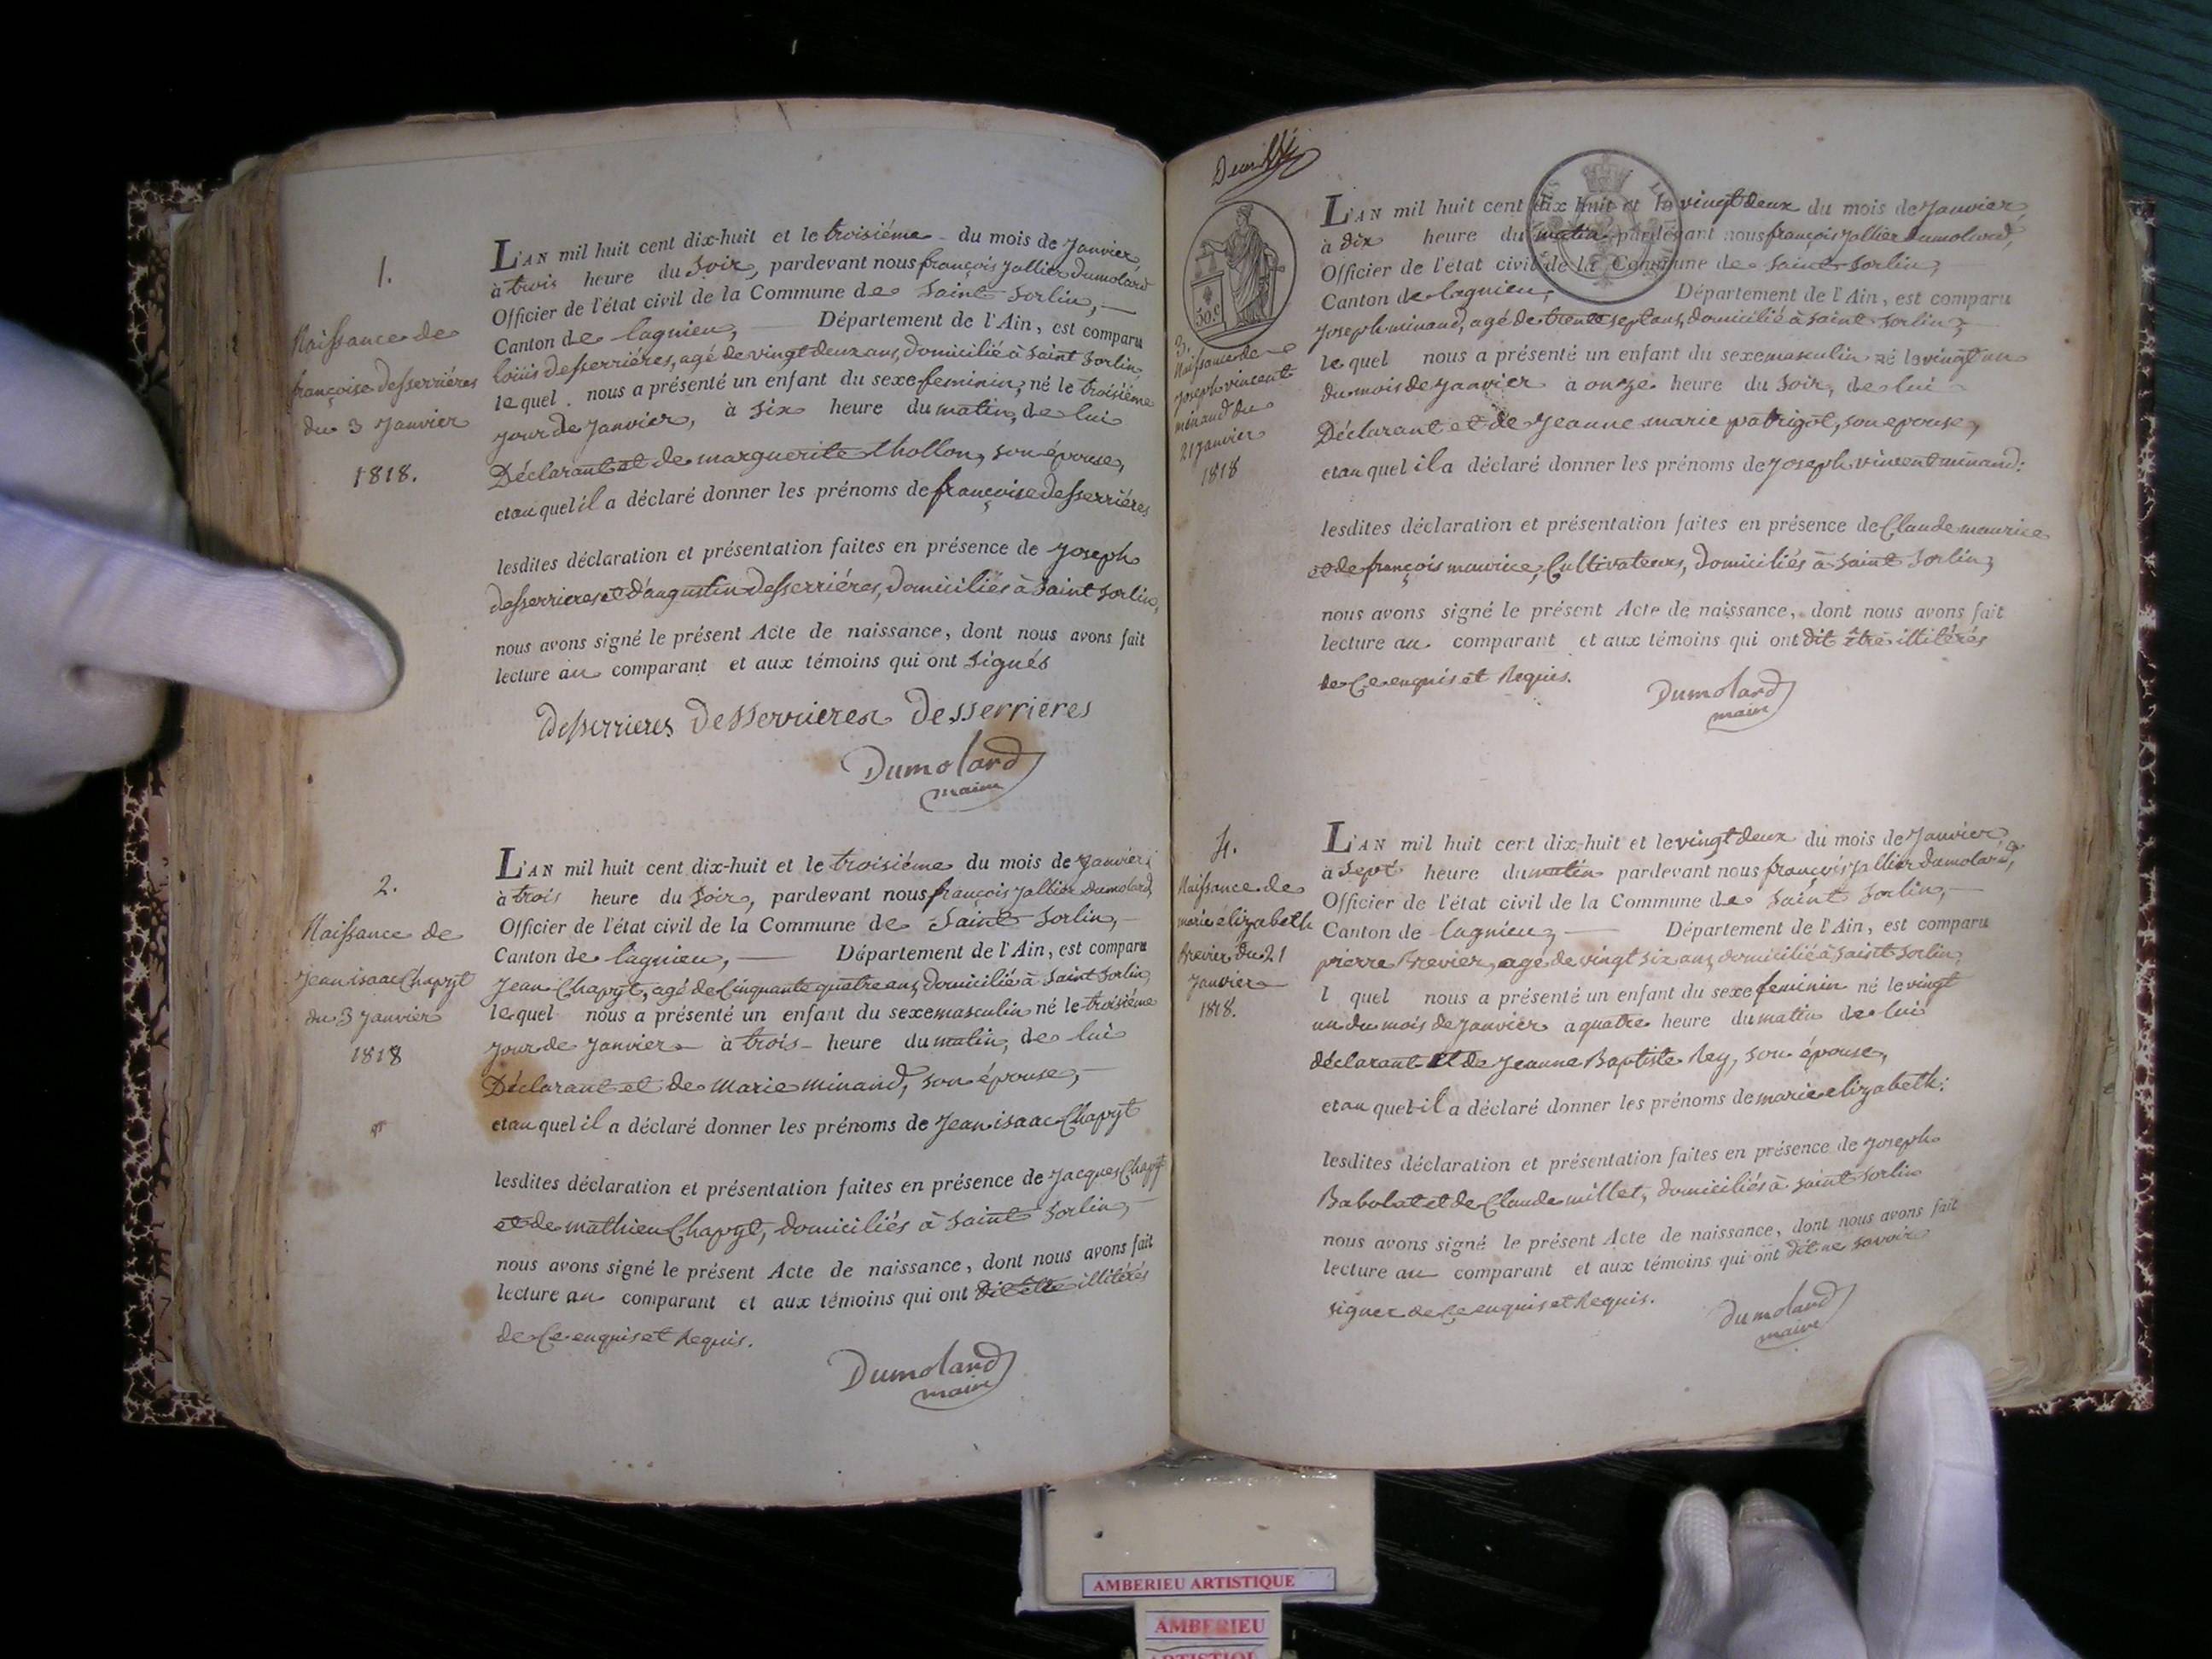 1.
Naissance de
françoise desserriéres
du 3 Janvier
1818.
L'AN mil huit cent dix-huit et le troisiéme du mois de Janvier,
à trois heure du soir, pardevant nous françois Jallier Dumolard
Officier de l'état civil de la Commune de Saint Sorlin,
Canton de lagnieu, Département de l'Ain, est comparu
loüis desserriéres, agé de vingt deux ans, domicilié à Saint Sorlin,
lequel nous a présenté un enfant du sexe feminin, né le troisiéme
Jour de Janvier, à six heure du matin, de lui
Déclarant et de marguerite thollon, son épouse,
et au quel il a déclaré donner les prénoms de françoise desserriéres
lesdites déclaration et présentation faites en présence de Joseph
desserrieres et d'augustin desserriéres, domiciliés à Saint Sorlin,
nous avons signé le présent Acte de naissance, dont nous avons fait
lecture au comparant et aux témoins qui ont signés
desserrieres desserrieres desserriéres
Dumolard
maire
2.
Naissance de
Jean isaac Chapyt
du 3 Janvier
1818
L'AN mil huit cent dix-huit et le troisiéme du mois de Janvier,
à trois heure du soir, pardevant nous françois Jallier Dumolard,
Officier de l'état civil de la Commune de Saint Sorlin,
Canton de lagnieu, Département de l'Ain, est comparu
Jean Chapyt, agé de Cinquante quatre ans, domicilié à Saint Sorlin,
lequel nous a présenté un enfant du sexe masculin né le troisiéme
Jour de Janvier à trois heure du matin, de lui
Déclarant et de Marie minand, son épouse,
et au quel il a déclaré donner les prénoms de Jean isaac Chapyt
lesdites déclaration et présentation faites en présence de Jacques Chapyt
et de mathieu Chapyt, domiciliés à Saint Sorlin,
nous avons signé le présent Acte de naissance, dont nous avons fait
lecture au comparant et aux témoins qui ont dit être illitérés
de Ce enquis et Requis.
Dumolard
maire
50.c
3.
Naissance de
Joseph vincent
minand du
21 Janvier
1818
L'AN mil huit cent dix huit et le vingt deux du mois de Janvier,
à dix heure du matin pardevant nous françois Jallier Dumolard,
Officier de l'état civil de la Commune de Saint Sorlin,
Canton de lagnieu, Département de l'Ain, est comparu
Joseph minand, agé de trente sept ans, domicilié à Saint Sorlin,
lequel nous a présenté un enfant du sexe masculin né le vingt un
du mois de Janvier à onze heure du soir, de lui
Déclarant et de Jeanne marie patrigot, son epouse,
et au quel il a déclaré donner les prénoms de Joseph vincent minand:
lesdites déclaration et présentation faites en présence de Claude maurice
et de françois maurice, Cultivateurs, domiciliés à Saint Sorlin,
nous avons signé le présent Acte de naissance, dont nous avons fait
lecture au comparant et aux témoins qui ont dit être illitérés
de Ce enquis et Requis.
Dumolard
maire
4.
Naissance de
marie elizabeth
Brevier du 21
Janvier
1818.
L'AN mil huit cent dix-huit et le vingt deux du mois de Janvier,
à sept heure du matin pardevant nous françois Jallier Dumolard,
Officier de l'état civil de la Commune de Saint Sorlin,
Canton de lagnieu, Département de l'Ain, est comparu
pierre Brevier, agé de vingt six ans, domicilié à Saint Sorlin,
l quel nous a présenté un enfant du sexe feminin né le vingt
un du mois de Janvier a quatre heure du matin de lui
déclarant et de Jeanne Baptiste Rey, son épouse,
et au quel il a déclaré donner les prénoms de marie elizabeth:
lesdites déclaration et présentation faites en présence de Joseph
Babolat et de Claude millet, domiciliés à Saint Sorlin
nous avons signé le présent Acte de naissance, dont nous avons fait
lecture au comparant et aux témoins qui ont dit ne savoir
signer de Ce enquis et Requis.
Dumolard
maire
AMBERIEU ARTISTIQUE
AMBERIEU
ARTISTIQUE